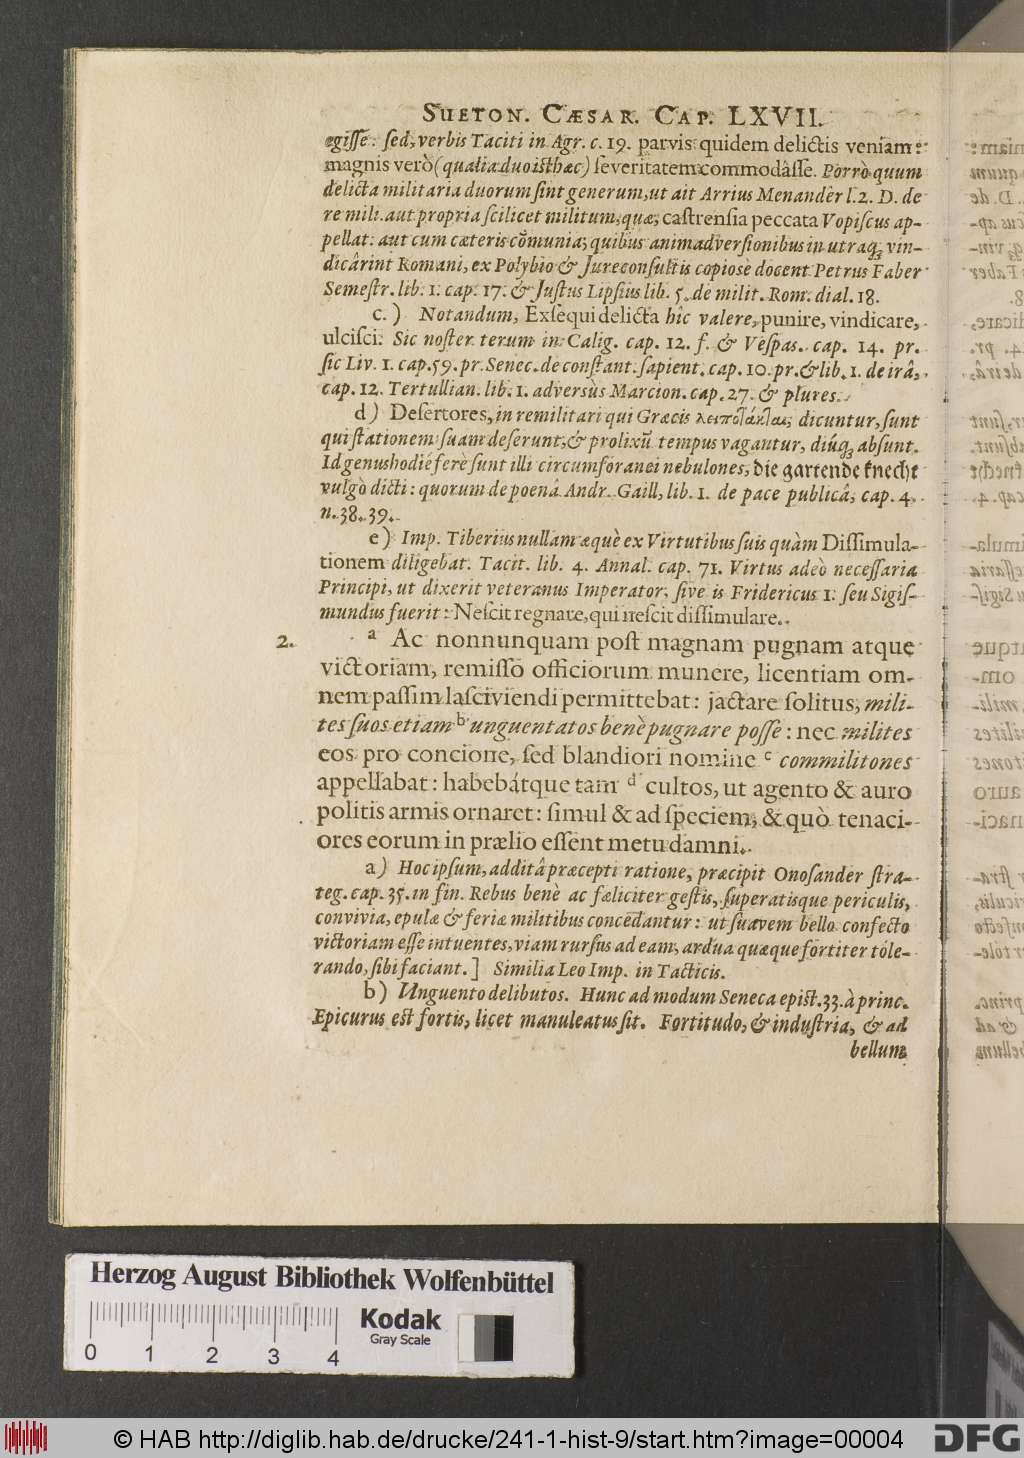 SUETON. CÆSAR. CAP. LXVII.
egiſſe: ſed, verbis Taciti in Agr. c. 19. parvis quidem delictis veniam:
magnis verò (qualia duo iſthæc) ſeveritatem commodâſſe. Porrò quum
delicta militaria duorum ſint generum, ut ait Arrius Menander l. 2. D. de
re mili. aut propria ſcilicet militum, quæ, caſtrenſia peccata Vopiſcus ap-
pellat: aut cum cæteris cõmunia; quibus animadverſionibus in utraq; vin-
dicârint Romani, ex Polybio & Jureconſultis copiosè docent Petrus Faber
Semeſtr. lib. 1. cap. 17. & Juſtus Lipſius lib. 5. de milit. Rom. dial. 18.
c.) Notandum, Exſequi delicta hîc valere, punire, vindicare,
ulciſci. Sic noſter terum in Calig. cap. 12. f. & Veſpas. cap. 14. pr.
ſic Liv. 1. cap. 59. pr. Senec. de conſtant. ſapient. cap. 10. pr. & lib. 1. de irâ,
cap. 12. Tertullian. lib. 1. adversùs Marcion. cap. 27. & plures.
d) Deſertores, in re militari qui Græcis λειποτάκται dicuntur, ſunt
qui ſtationem ſuam deſerunt, & prolixũ tempus vagantur, diúq; abſunt.
Id genus hodié ferè ſunt illi circumforanei nebulones, die gartende knecht
vulgò dicti: quorum de poenâ Andr. Gaill, lib. 1. de pace publicâ, cap. 4.
n. 38. 39.
e) Imp. Tiberius nullam æquè ex Virtutibus ſuis quàm Diſſimula-
tionem diligebat. Tacit. lib. 4. Annal. cap. 71. Virtus adeò neceſſaria
Principi, ut dixerit veteranus Imperator, ſive is Fridericus 1. ſeu Sigiſ-
mundus fuerit: Neſcit regnare, qui neſcit diſſimulare.
2. a Ac nonnunquam poſt magnam pugnam atque
victoriam, remiſſo officiorum munere, licentiam om-
nem paſſim laſciviendi permittebat: jactare ſolitus, mili-
tes ſuos etiam b unguentatos benè pugnare poſſe: nec milites
eos pro concione, ſed blandiori nomine c commilitones
appellabat: habebátque tam d cultos, ut agento & auro
politis armis ornaret: ſimul & ad ſpeciem, & quò tenaci-
ores eorum in prælio eſſent metu damni.
a) Hoc ipſum, additâ præcepti ratione, præcipit Onoſander ſtra-
teg. cap. 35. in fin. Rebus benè ac fæliciter geſtis, ſuperatisque periculis,
convivia, epulæ & feriæ militibus concedantur: ut ſuavem bello confecto
victoriam eſſe intuentes, viam rurſus ad eam, ardua quæque fortiter tole-
rando, ſibi faciant.] Similia Leo Imp. in Tacticis.
b) Unguento delibutos. Hunc ad modum Seneca epiſt. 33. à princ.
Epicurus eſt fortis, licet manuleatus ſit. Fortitudo, & induſtria, & ad
bellum
Herzog August Bibliothek Wolfenbüttel
Kodak
Gray Scale
0 1 2 3 4
© HAB http://diglib.hab.de/drucke/241-1-hist-9/start.htm?image=00004
DFG